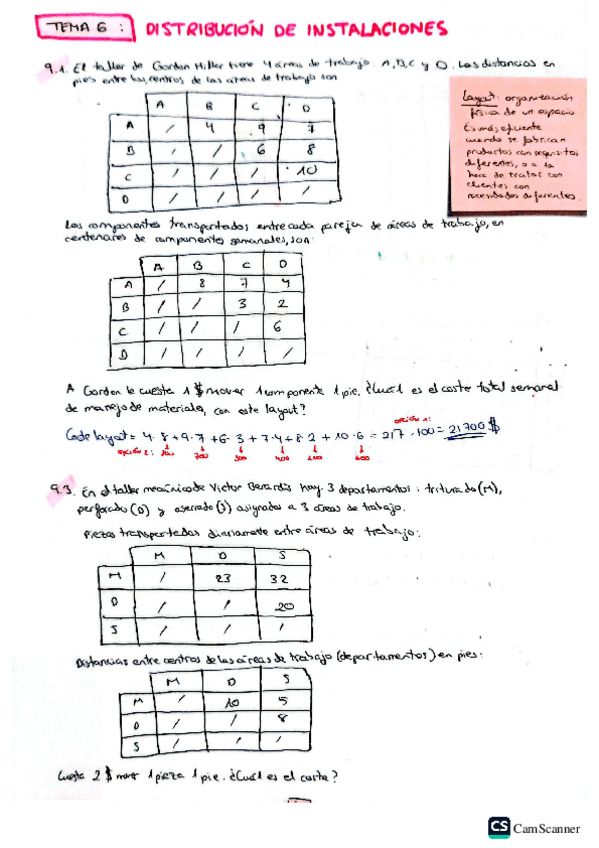 TEMA 6 : DISTRIBUCIÓN DE INSTALACIONES
9.1. El taller de Gordon Miller tiene 4 áreas de trabajo: A, B, C y D. Las distancias en
pies entre los centros de las áreas de trabajo son
A B C D
A / 4 9 7
B / / 6 8
C / / / 10
D / / / /
Layout: organización
física de un espacio
Es más eficiente
cuando se fabrican
productos con requisitos
diferentes, o a la
hora de tratar con
clientes con
necesidades diferentes.
Los componentes transportados entre cada pareja de áreas de trabajo, en
centenares de componentes semanales, son:
A B C D
A / 8 7 4
B / / 3 2
C / / / 6
D / / / /
A Gordon le cuesta 1 $ mover 1 componente 1 pie. ¿Cuál es el coste total semanal
de manejo de materiales, con este layout?
opción 1:
Coste layout = 4·8 + 9·7 + 6·3 + 7·4 + 8·2 + 10·6 = 217 · 100 = 21700 $
opción 2: 800 700 300 400 200 600
9.3. En el taller mecánico de Victor Berardis hay 3 departamentos: triturado (M),
perforado (D) y aserrado (S) asignados a 3 áreas de trabajo.
Piezas transportadas diariamente entre áreas de trabajo:
M D S
M / 23 32
D / / 20
S / / /
Distancias entre centros de las áreas de trabajo (departamentos) en pies:
M D S
M / 10 5
D / / 8
S / / /
Cuesta 2 $ mover 1 pieza 1 pie. ¿Cuál es el coste?
CS CamScanner